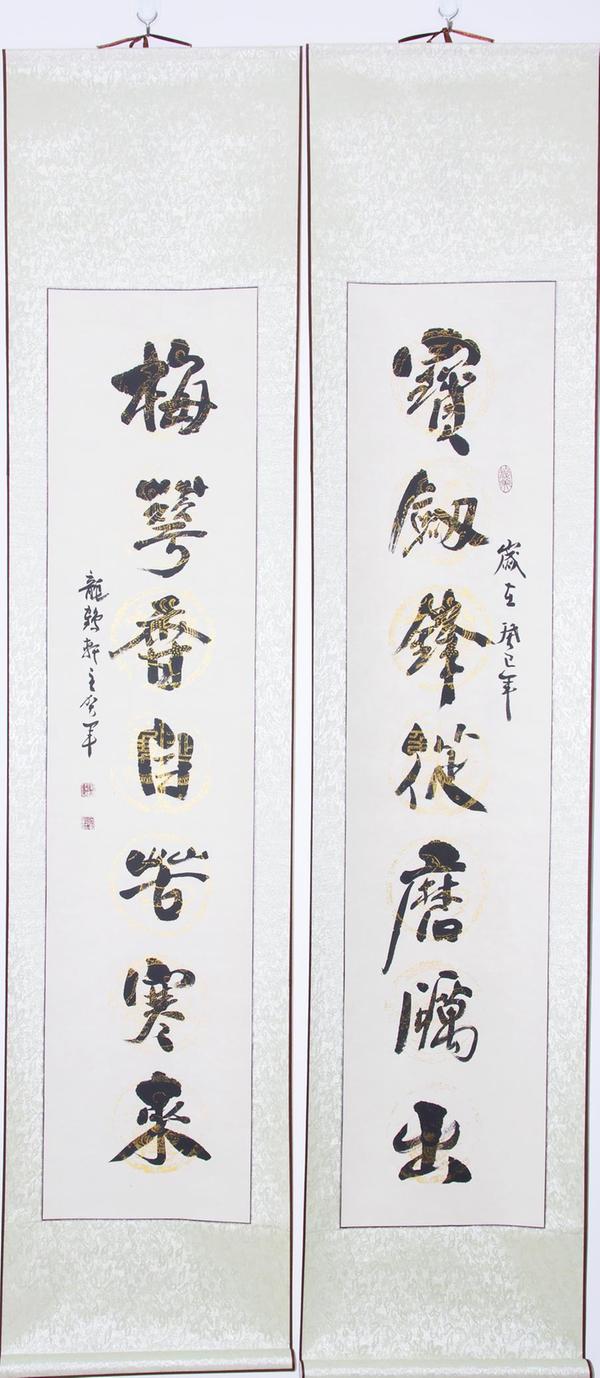 寶劍鋒從磨礪出
歲在癸巳年
梅花香自苦寒來
龍鶴軒主